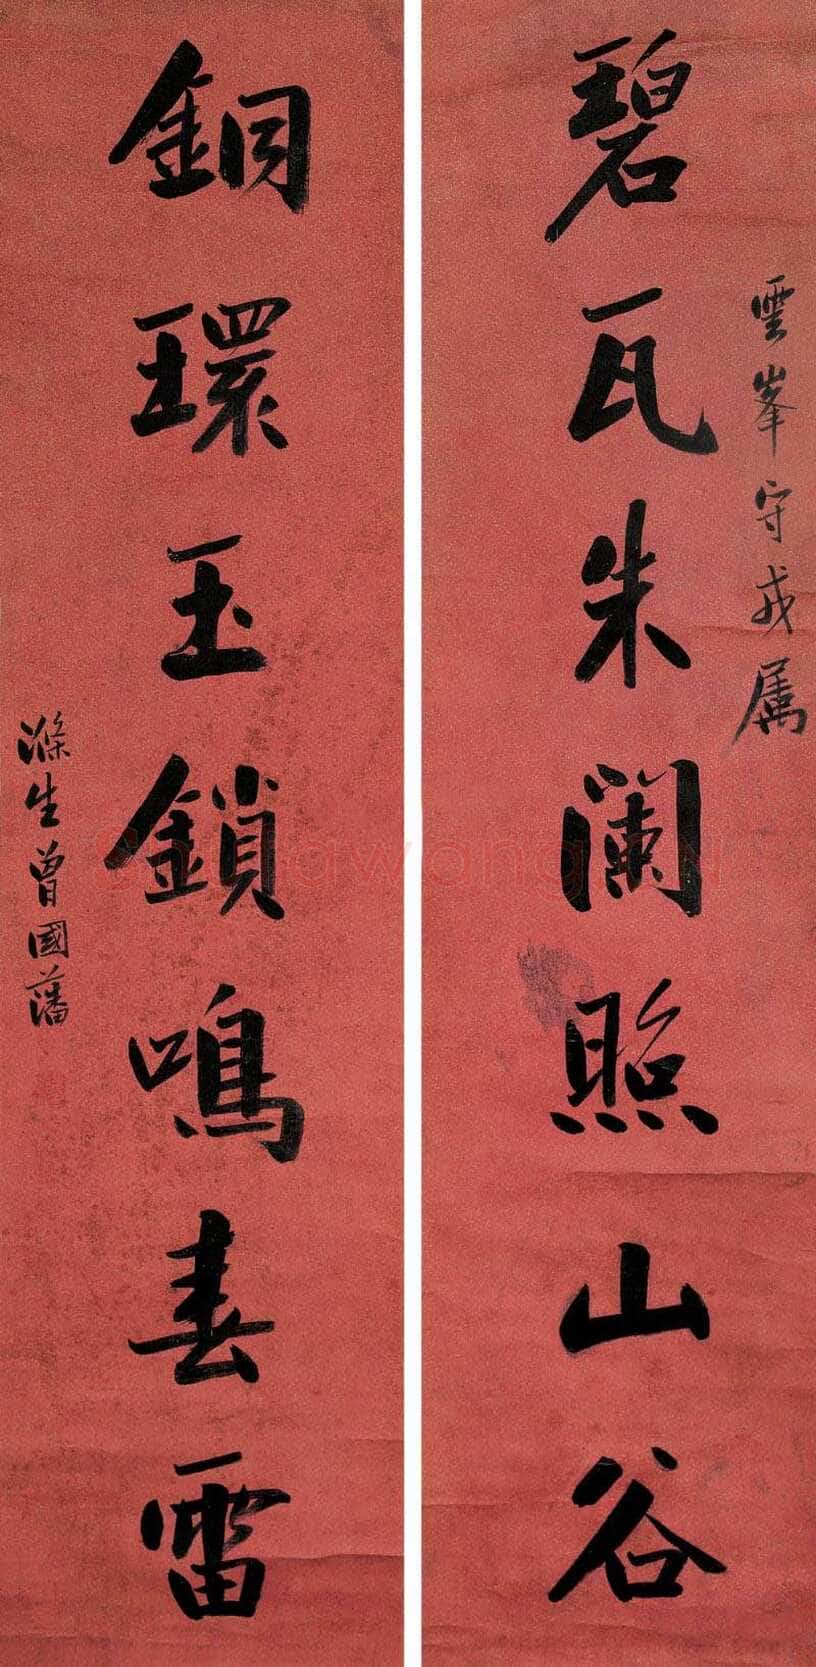 碧瓦朱闌照山谷
雲峯守戎属
銅環玉鎖鳴春雷
滌生曾國藩